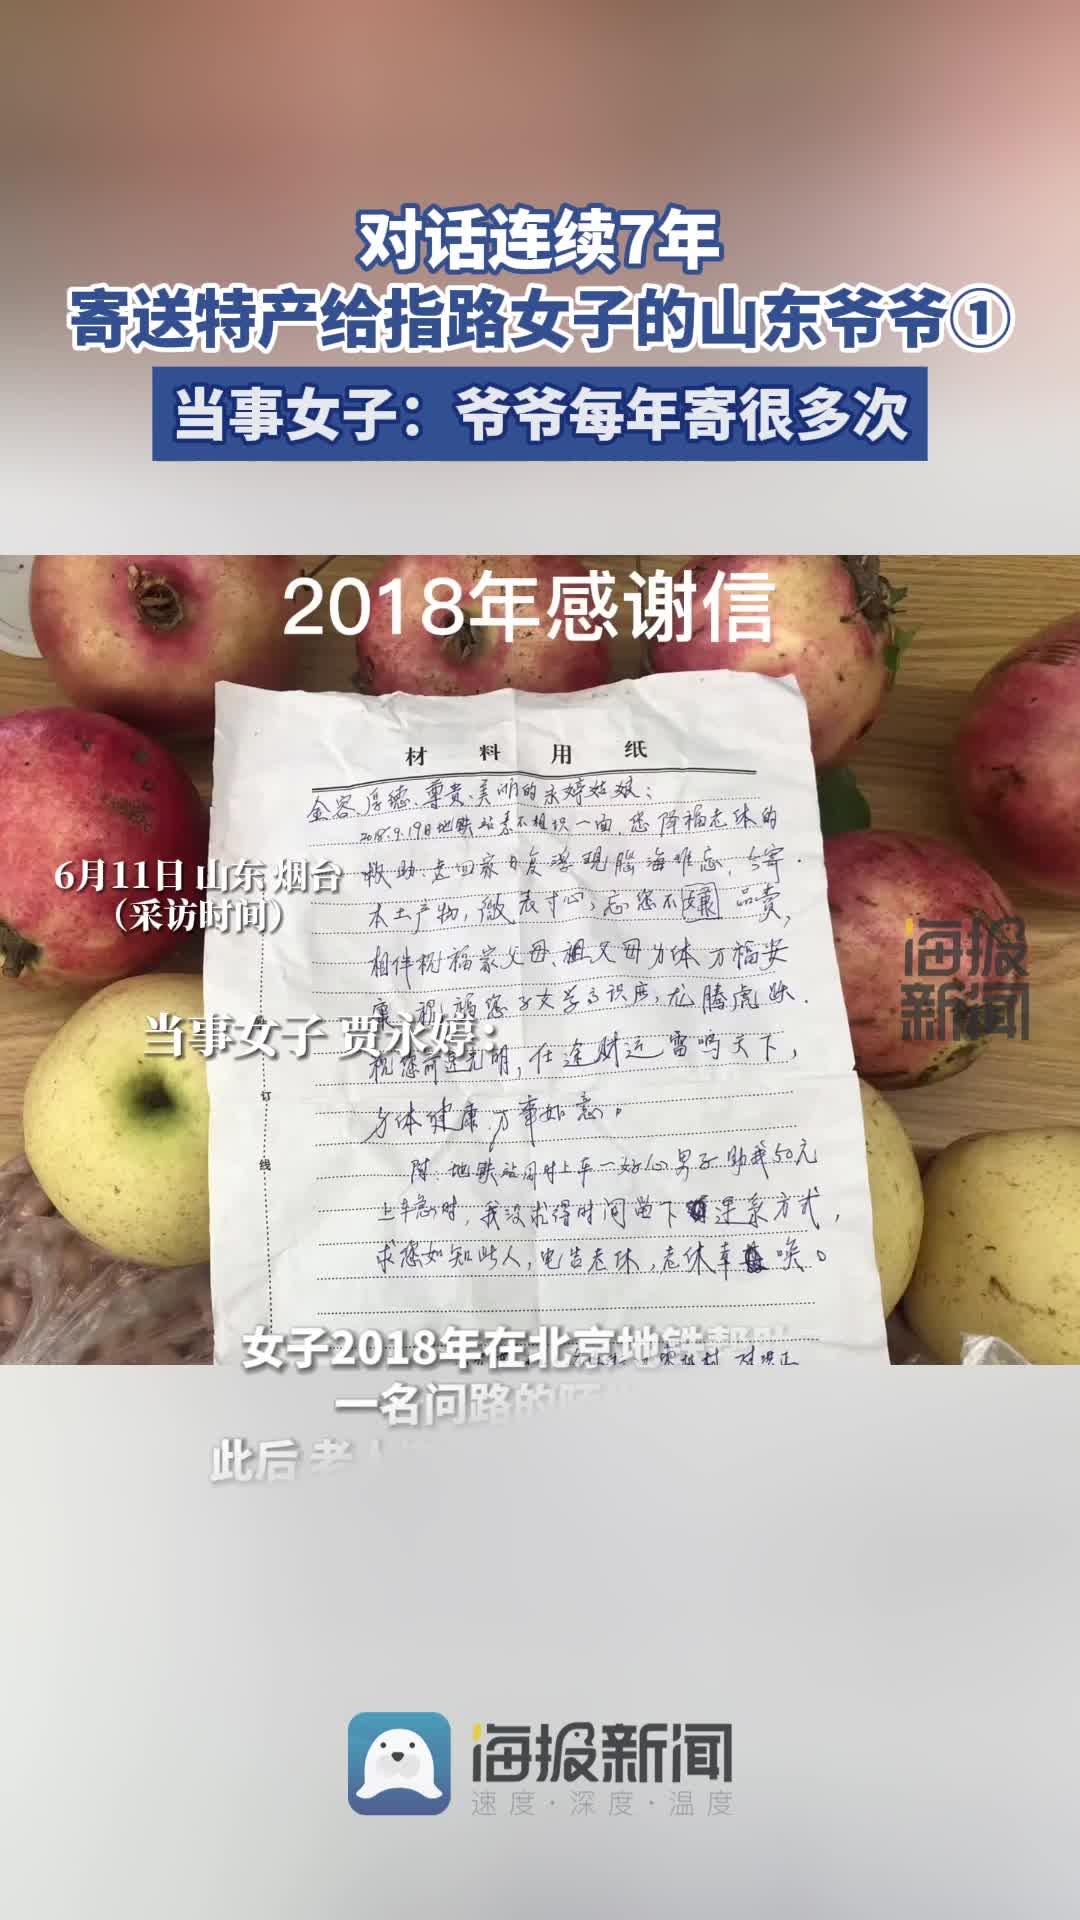 对话连续7年
寄送特产给指路女子的山东爷爷①
当事女子：爷爷每年寄很多次
2018年感谢信
材料用纸
金容、厚德、尊贵、美丽的永婷姑娘：
2018.9.19日地铁站素不相识一面，您降福老休的
救助，走回家日夜浮现脑海难忘，今寄
本土产物，微表寸心，忘您不嫌品尝，
相伴祝福家父母、祖父母身体万福安
康，祝福您子女学高识广，龙腾虎跃.
祝您前途光明，仕途财运雷鸣天下，
身体健康，万事如意。
附：地铁站同时上车一好心男子助我50元
上车急时，我没求得时间留下联系方式，
求您如知此人，电告老休，老休幸
6月11日 山东 烟台
（采访时间）
当事女子 贾永婷：
订
线
海报
新闻
女子2018年在北京地铁帮助
一名问路的陌
此后 老人
海报新闻
速度·深度·温度